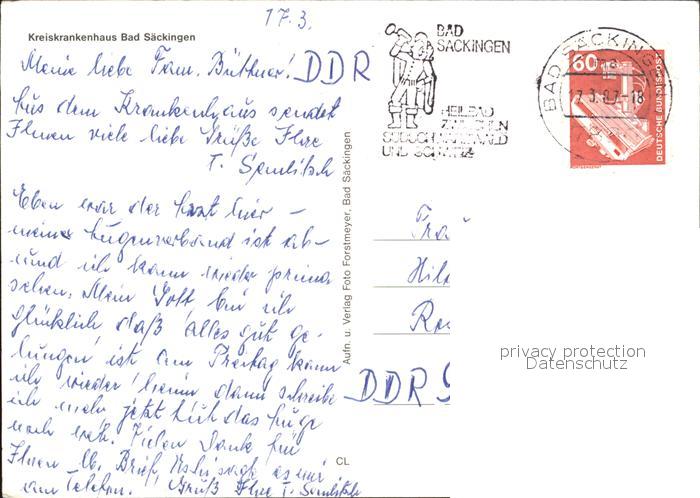 17.3.
Kreiskrankenhaus Bad Säckingen
Meine liebe Fam. Büttner! DDR
Aus dem Krankenhaus sendet
Ihnen viele liebe Grüße Ihre
T.
Eben war der Arzt hier –
meine Augenverband ist ab-
und ich kann wieder prima
sehen. Mein Gott bin ich
glücklich daß alles gut ge-
lungen ist am Freitag kann
ich wieder heim dann schreibe
ich mehr jetzt tut das Auge
noch weh. Vielen Dank für
Ihren lb. Brief, es mir
am Telefon. Gruß Ihre T.
BAD
SÄCKINGEN
HEILBAD
ZWISCHEN
SÜDSCHWARZWALD
UND SCHWEIZ
BAD SÄCKINGEN
17.3.87-18
60
DEUTSCHE BUNDESPOST
Aufn. u. Verlag Foto Forstmeyer, Bad Säckingen
CL
DDR
privacy protection
Datenschutz